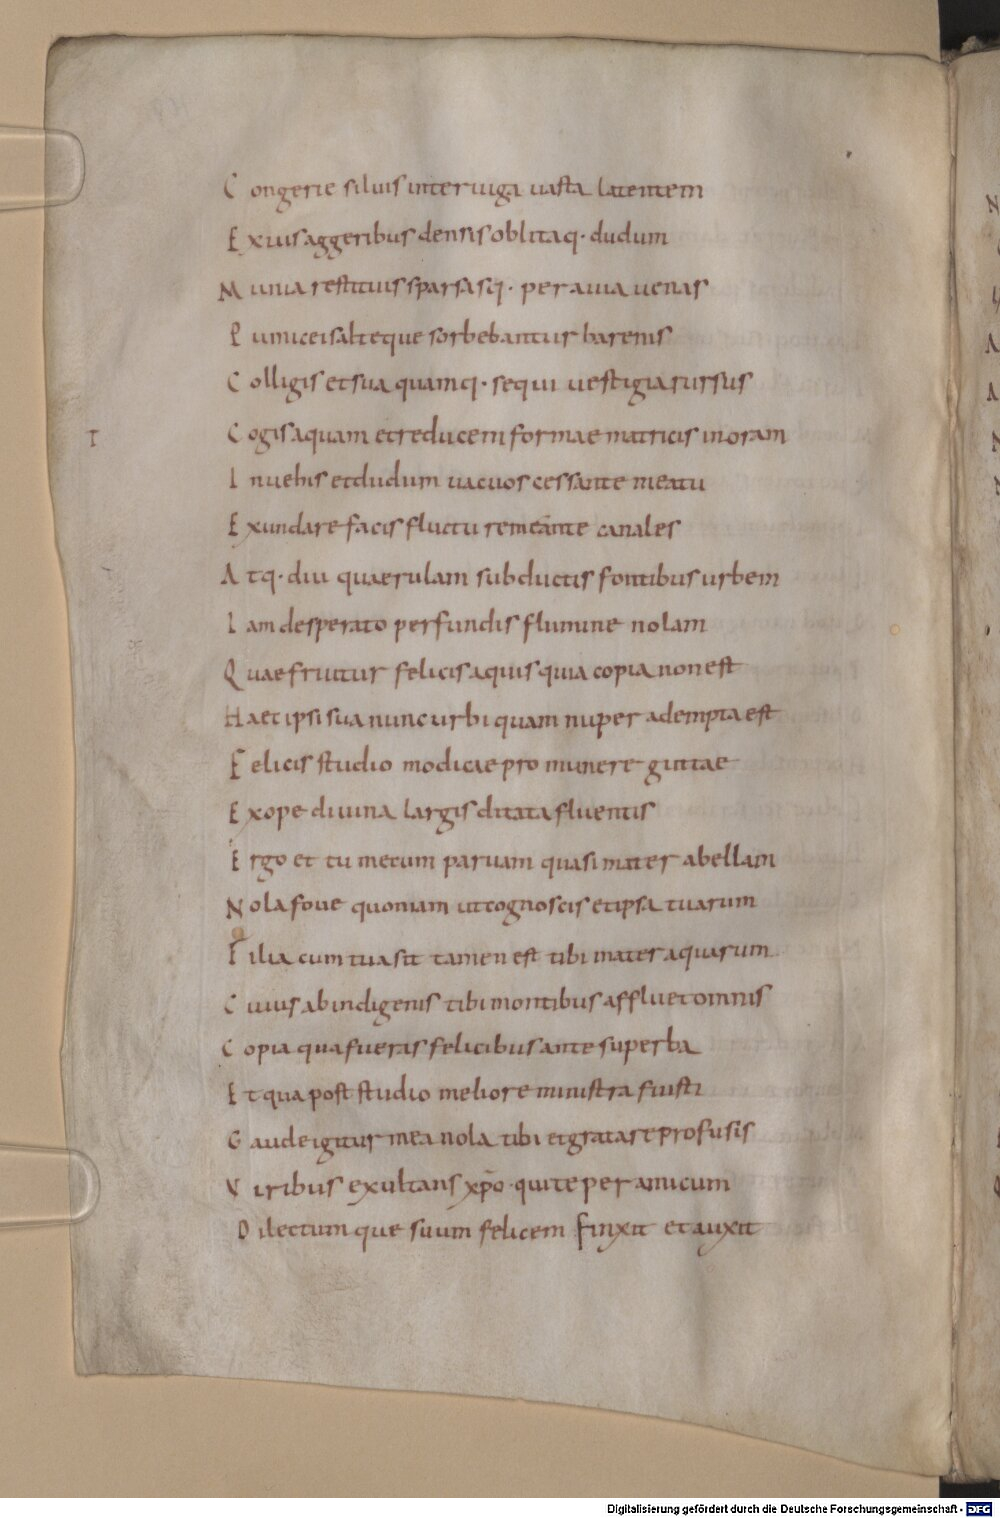 Congerie siluis inter iuga uasta latentem
Exuis aggeribus densis oblitaq· dudum
Munia restituis sparsasq· per auia uenas
Pumiceis alte que sorbebantur harenis
Colligis et sua quamq· sequi uestigia rursus
T Cogis aquam et reducem formae matricis in oram
Inuehis et dudum uacuos cessante meatu
Exundare facis fluctu remeante canales
Atq· diu quaerulam subductis fontibus urbem
Iam desperato perfundis flumine nolam
Quae fruitur felicis aquis quia copia non est
Haec ipsi sua nunc urbi quam nuper adempta est
Felicis studio modicae pro munere guttae
Ex ope diuina largis ditata fluentis
Ergo et tu mecum paruam quasi mater abellam
Nola foue quoniam ut cognoscis et ipsa tuarum
Filia cum tua sit tamen est tibi mater aquarum
Cuius ab indigenis tibi montibus affluet omnis
Copia qua fueras felicibus ante superba
Et qua post studio meliore ministra fuisti
Gaude igitur mea nola tibi et gratare profusis
Viribus exultans xp̄o· qui te per amicum
Dilectum que suum felicem finxit et auxit
Digitalisierung gefördert durch die Deutsche Forschungsgemeinschaft - DFG